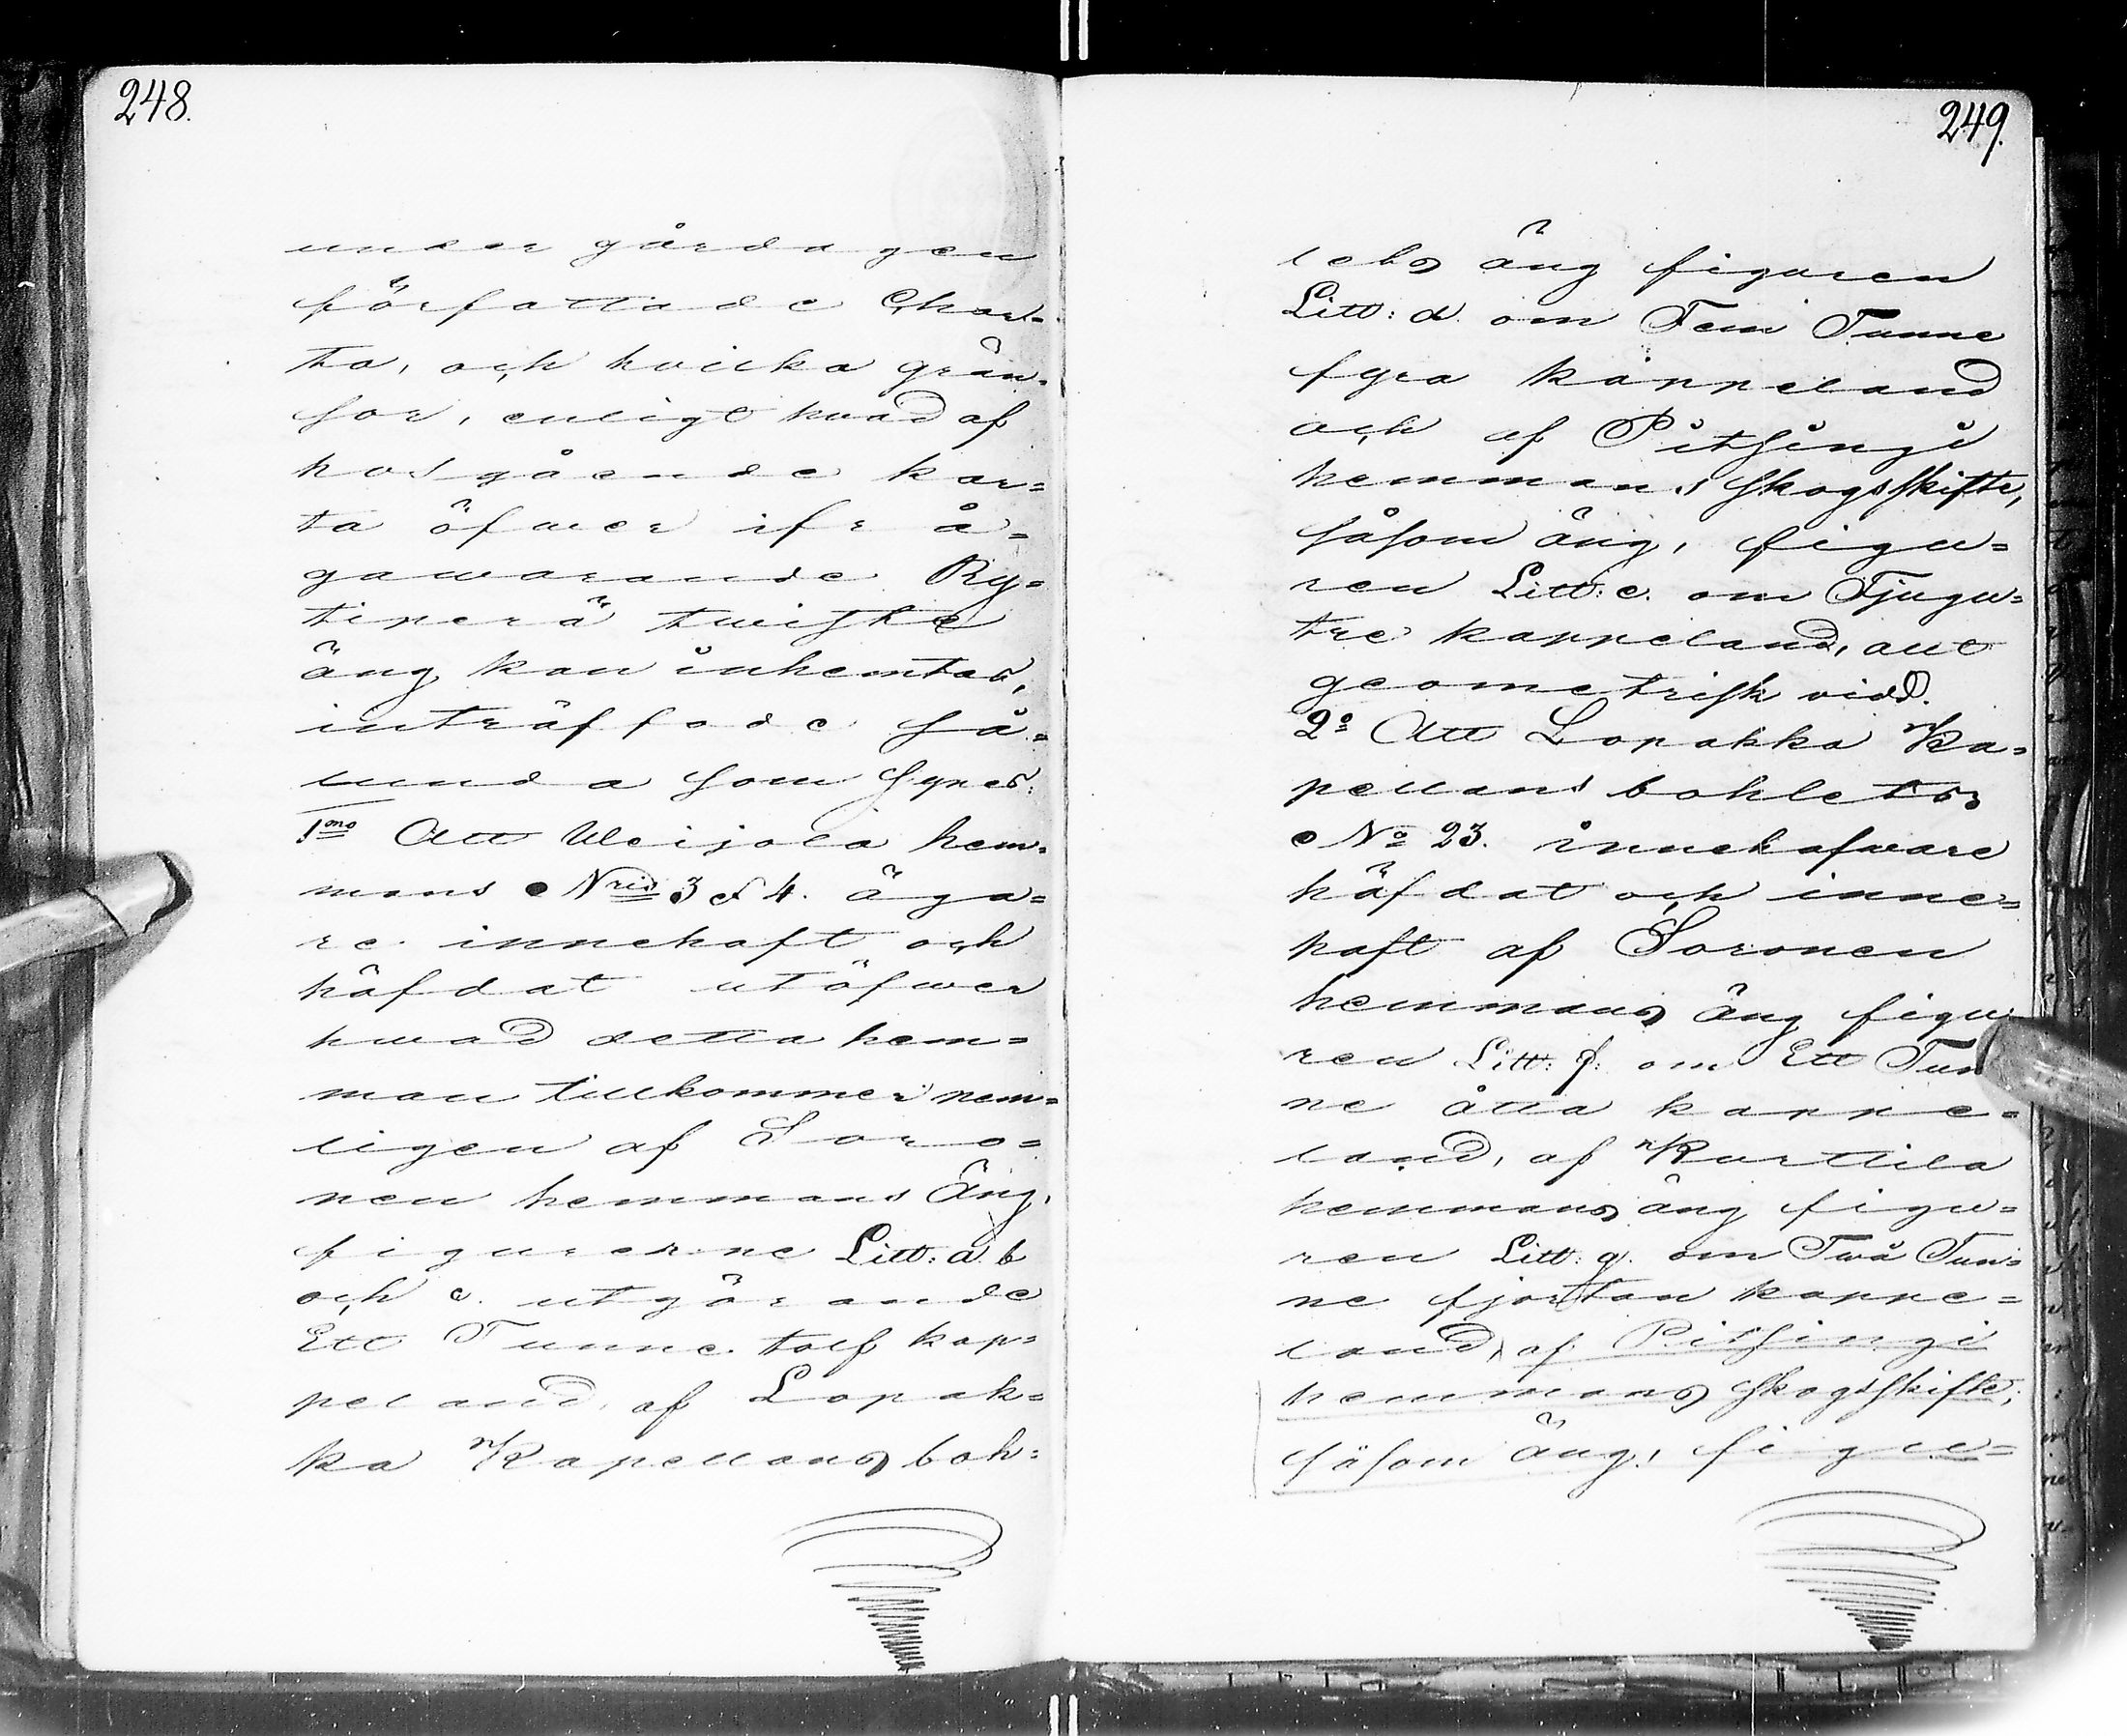 248.
under gårdagen
författade Char-
ta, och hvilka grän-
sor, enligt hvad af
hosgående kar=
ta öfwer ifr å=
gawarande Ry=
tiperä twistige
äng kan inhemtas,
inträffade få=
lunda som synes:
1mo Att Uleijola hem-
mans Nris 3 & 4. äga=
re innehaft och
häfdat utöfwer
hwad detta hem=
man tillkommer nem=
ligen af Soro=
nen hemmans Äng,
figurerne Litt: a. b
och c. utgörande
Ett Tunne. tolf kap=
peland, af Lopak=
ka Kapellans boh=
249.
lets äng figuren
Litt: d. om Fem Tunne
fyra kappeland
och af Pitsingi
hemmans skogsskifte,
såsom äng, figu=
ren Litt: e. om Tjugu=
tre kappeland, allt
geometrisk vidd.
2o Att Lopakka Ka=
pellans bohlets
No 23. innehafware
häfdat och inne=
haft af Soronen
hemmans äng figu
ren Litt: f. om Ett Tun
ne åtta kappe=
land, af Kurttila
hemmans äng figu=
ren Litt: g. om Två Tun=
ne fjortan kappe=
land, af Pitsingi
hemmans skogsskifte,
såsom äng, figu=